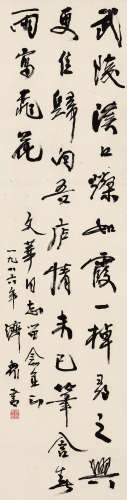 武陵溪口燦如霞一棹尋之興
更佳歸向吾廬情未已筆含春
雨寫花
文華同志留念
一九八六年濟書